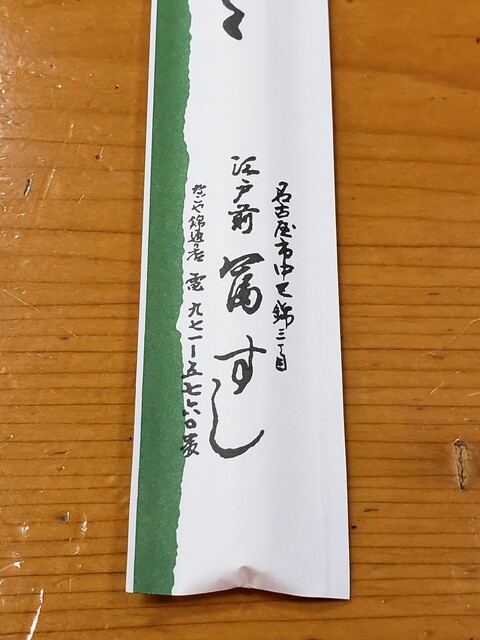 名古屋市中区錦三丁目
江戸前 冨すし
なごや錦通店 電 九七一ー五七六〇番